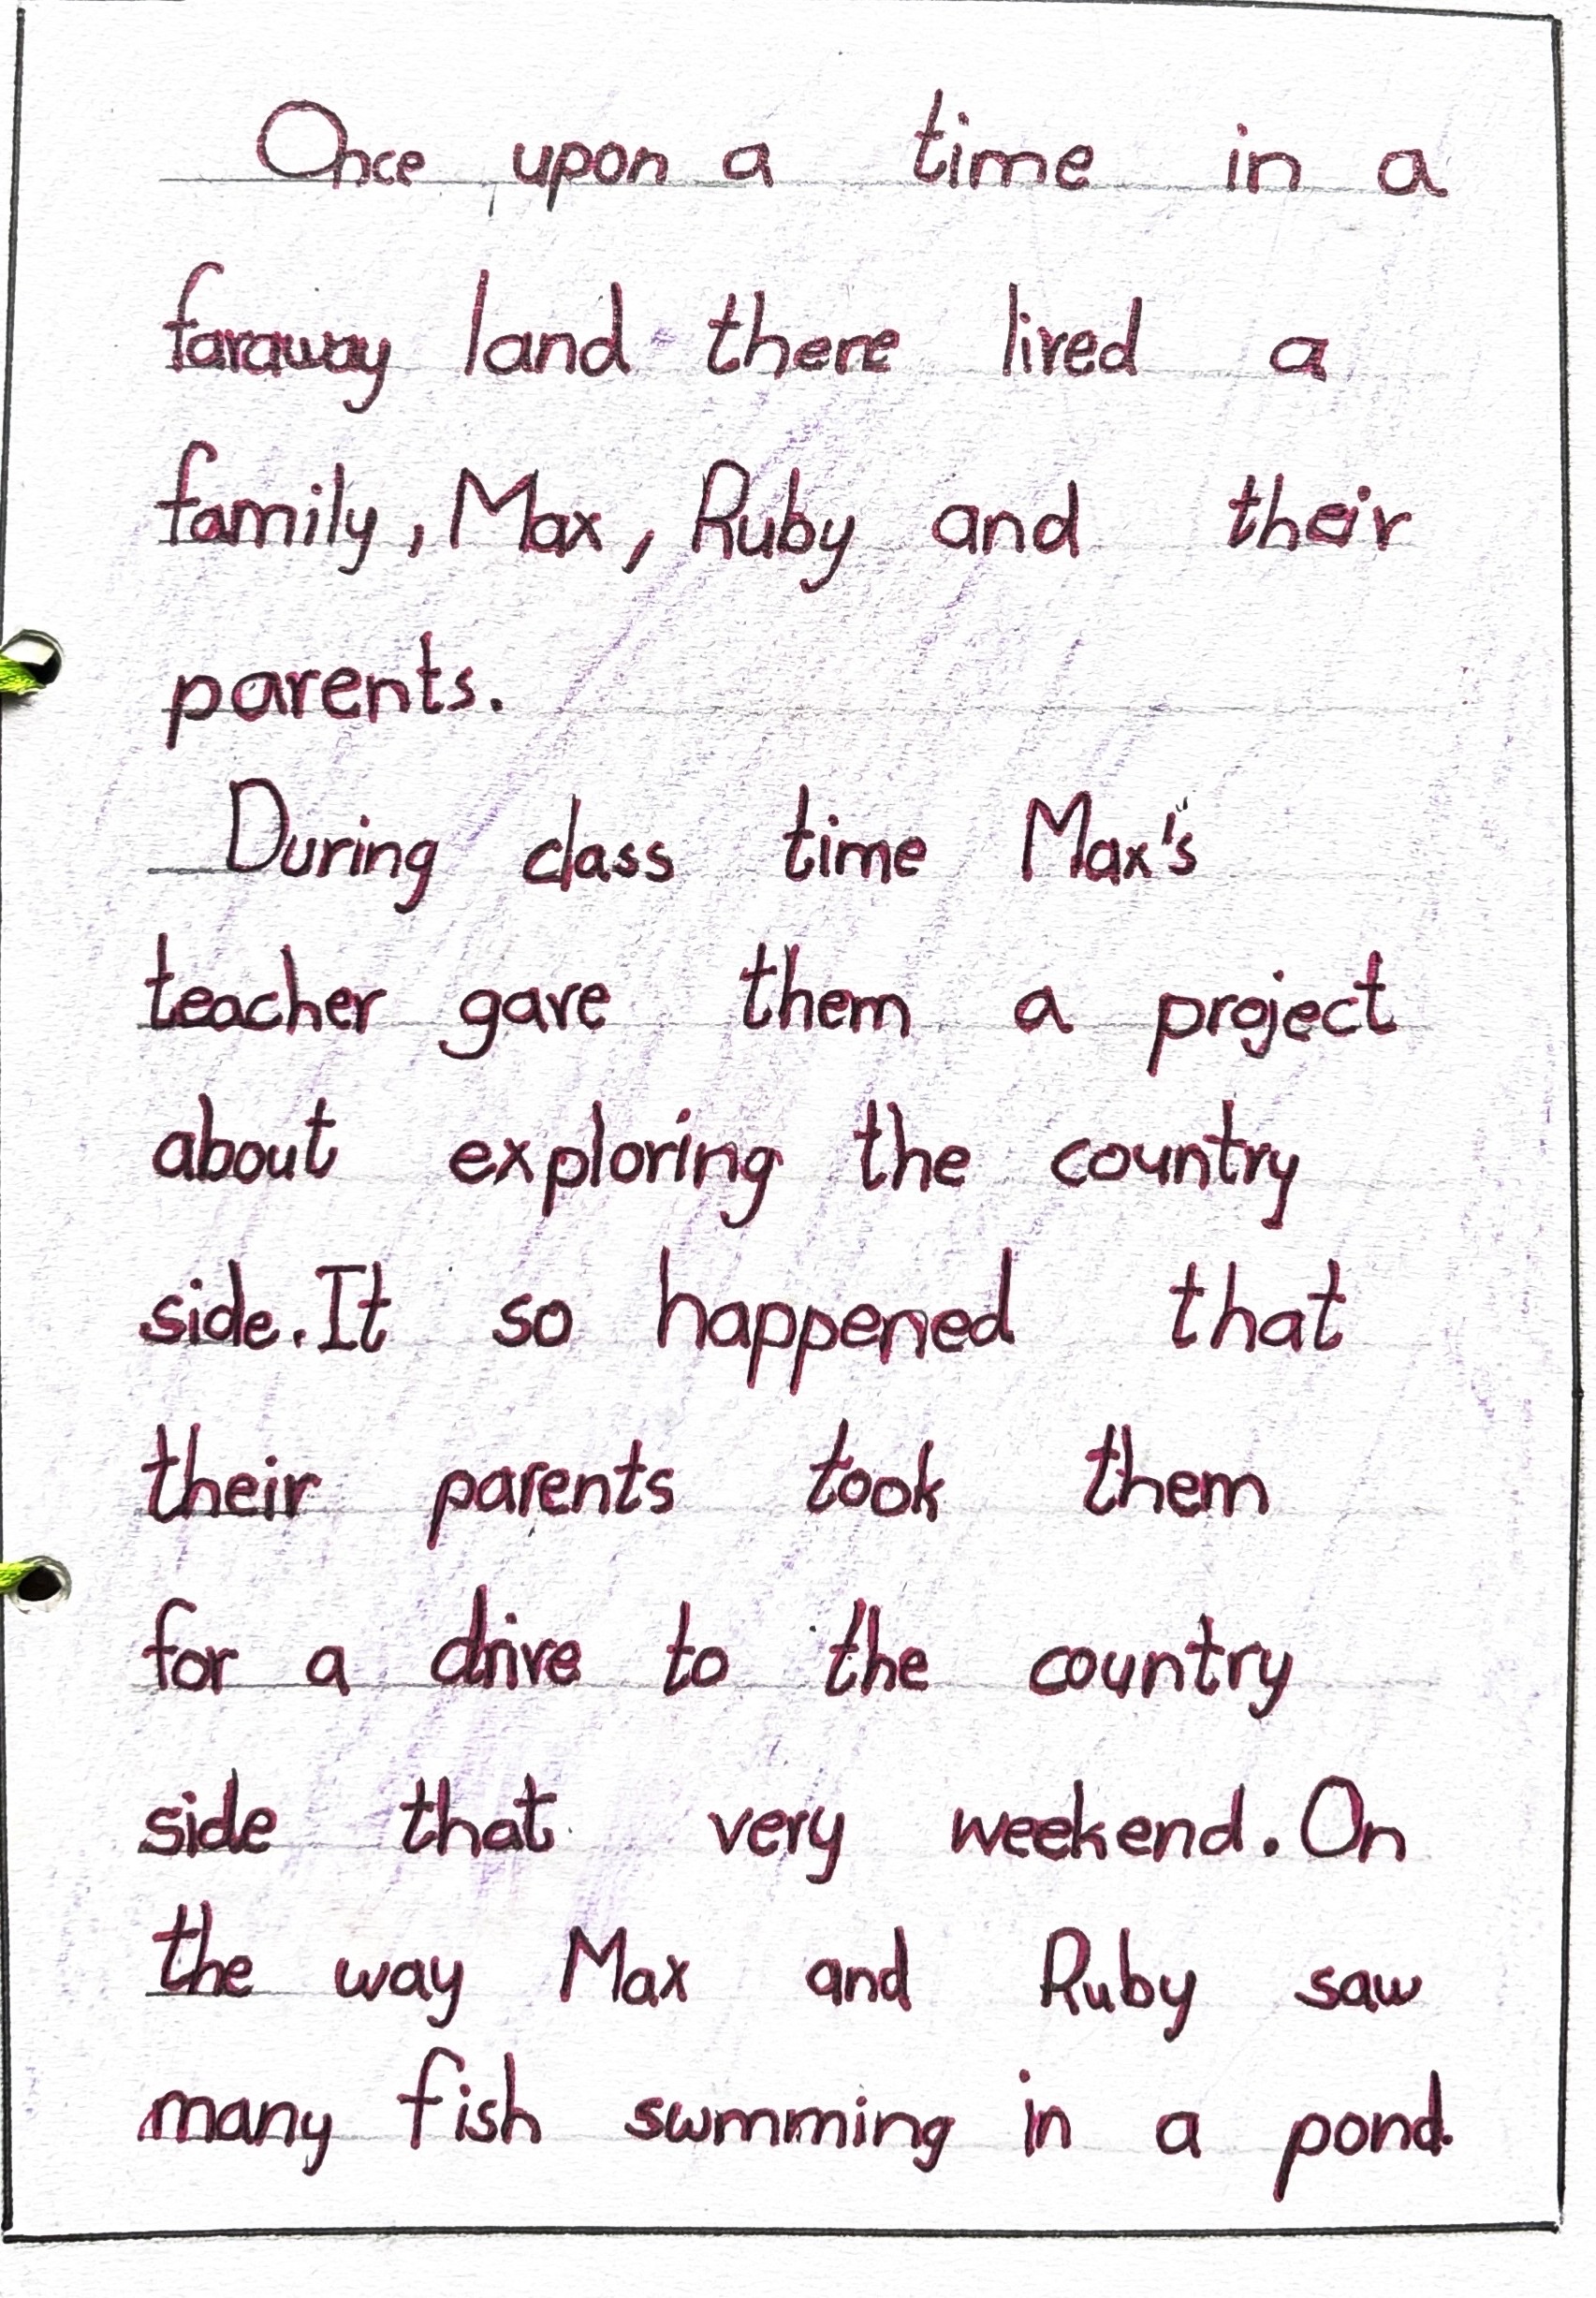 Once upon a time in a
faraway land there lived a
family, Max, Ruby and their
parents.
During class time Max's
teacher gave them a project
about exploring the country
side. It so happened that
their parents took them
for a drive to the country
side that very weekend. On
the way Max and Ruby saw
many fish swmming in a pond.